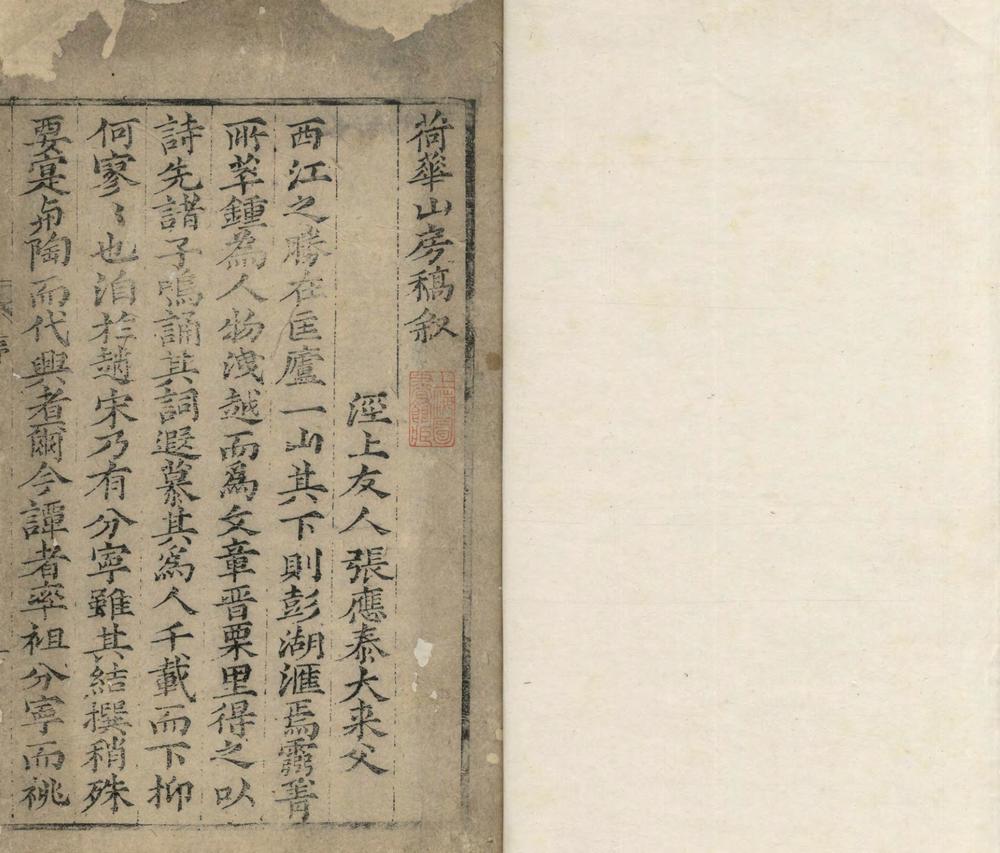 荷華山房稿叙
涇上友人張應泰大来父
西江之勝在匡廬一山其下則彭湖滙焉靈菁
所萃鍾為人物洩越而爲文章晋栗里得之以
詩先諸子鳴誦其詞遐慕其爲人千載而下抑
何寥〻也洎於趙宋乃有分寧雖其結撰稍殊
要寔與陶而代興者爾今譚者率祖分寧而祧